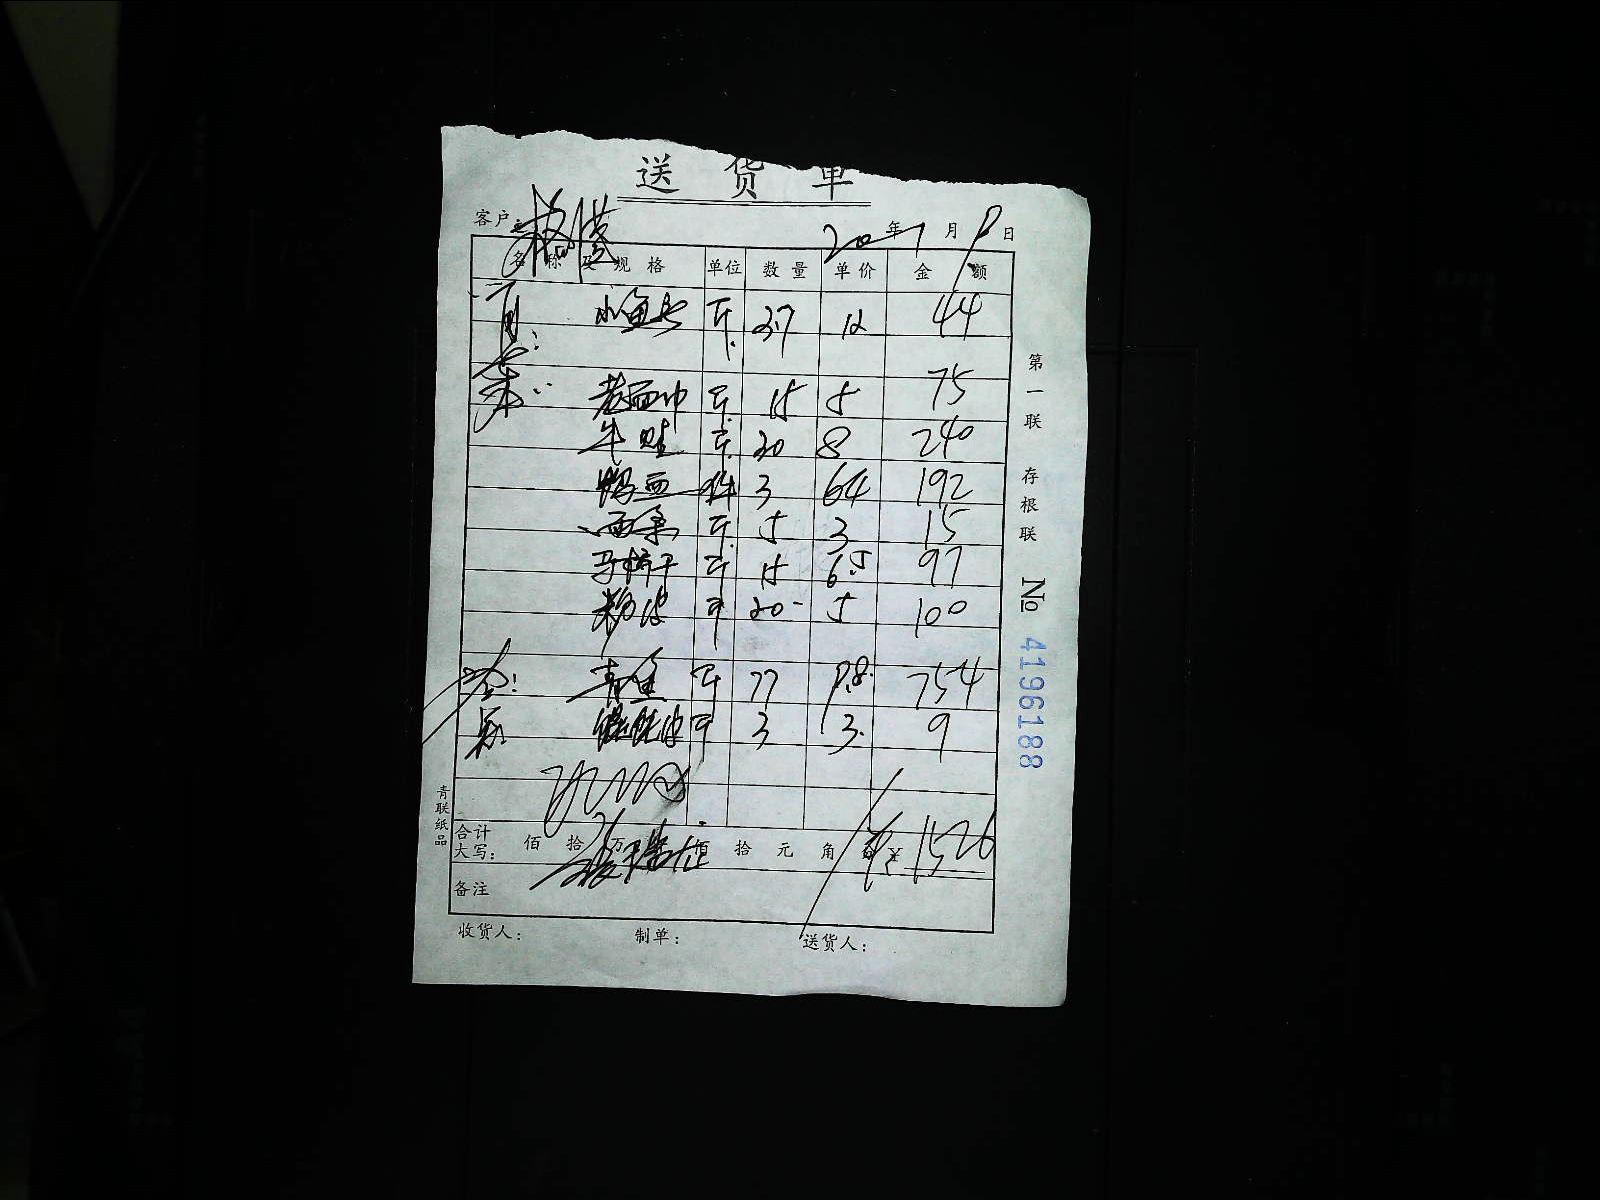 送货单
客户:
20 年 1 月 9 日
名称及规格 单位 数量 单价 金额
小鱼 斤 3.7 12 44
斤 15 5 75
牛蛙 斤 30 8 240
鸭血 件 3 64 192
斤 5 3 15
斤 15 6.5 97
粉皮 斤 20 5 100
青鱼 斤 77 9.8 754
馄饨皮 斤 3 3 9
合计
大写: 佰 拾 万 佰 拾 元 角 ¥ 1526
备注
收货人: 制单: 送货人:
第一联 存根联 No 4196188
青联纸品